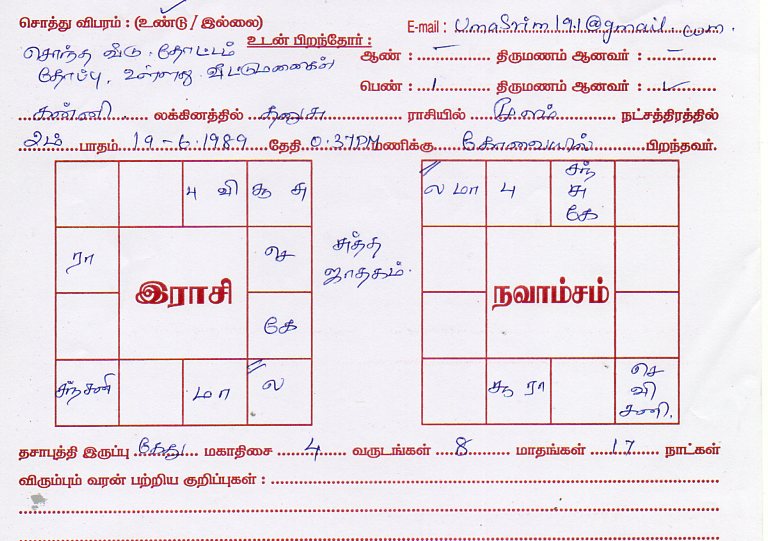 சொத்து விபரம் : (உண்டு / இல்லை)
E-mail : UmaSrim191@gmail.com
சொந்த வீடு. தோட்டம்
உடன் பிறந்தோர் :
ஆண் : – திருமணம் ஆனவர் : –
தோப்பு, உள்ளது. வீட்டுமனைகள்
பெண் : 1 திருமணம் ஆனவர் : ✓
கன்னி லக்கினத்தில் தனுசு ராசியில் மூலம் நட்சத்திரத்தில்
2ம் பாதம் 19-6-1989 தேதி 0.37PM மணிக்கு கோவையில் பிறந்தவர்.
4 வி சூ சு
ரா செ
இராசி
கே
சந் சனி மா ல
சுத்த
ஜாதகம்.
ல மா 4 சந்
சு
கே
நவாம்சம்
சூ ரா செ
வி
சனி.
தசாபுத்தி இருப்பு கேது மகாதிசை 4 வருடங்கள் 8 மாதங்கள் 17 நாட்கள்
விரும்பும் வரன் பற்றிய குறிப்புகள் :